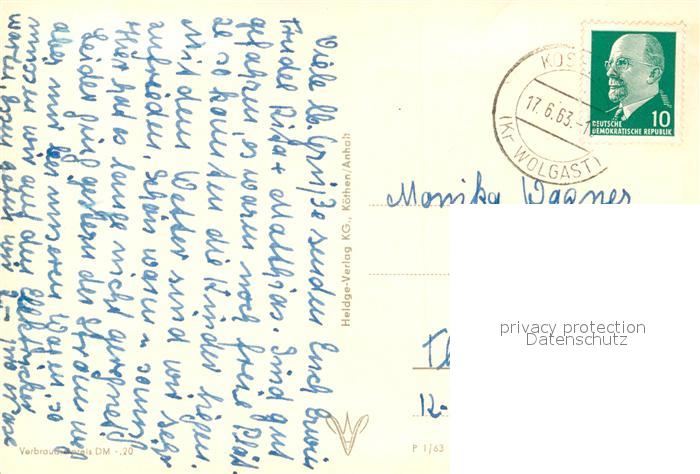 Viele lb. Grüße senden Euch Eure
Trudel Rita + Matthias. Sind gut
gefahren, es waren noch freie Plät
ze so konnten die Kinder liegen.
Mit dem Wetter sind wir sehr
zufrieden, schön warm u. sonnig
Hier hat es lange nicht geregnet
Leider ging gestern der Strom weg
aber nur in unserem Wagen, so
müssen wir auf den Elektriker
warten,
Heldge-Verlag KG., Köthen/Anhalt
Verbraucherpreis DM -,20
P 1/63
KOS
17.6.63.-1
(Kr WOLGAST)
10
DEUTSCHE
DEMOKRATISCHE REPUBLIK
Monika Wagner
privacy protection
Datenschutz